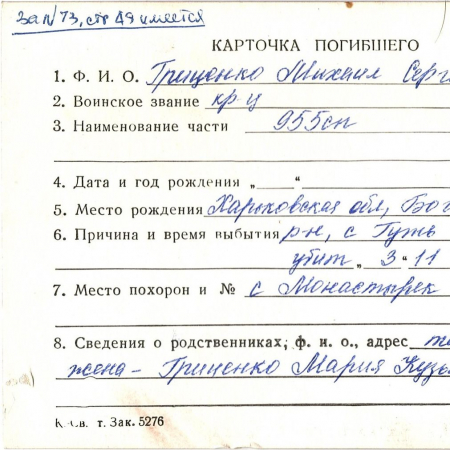 За №73, стр 49 имеется
КАРТОЧКА ПОГИБШЕГО
1. Ф. И. О. Гриценко Михаил Серг
2. Воинское звание кр-ц
3. Наименование части 955сп
4. Дата и год рождения „ “
5. Место рождения Харьковская обл, Бог
6. Причина и время выбытия р-н, с Гуть
убит „ 3 “ 11
7. Место похорон и № с Монастырек
8. Сведения о родственниках, ф. и. о., адрес
жена - Гриценко Мария Кузь
т. Зак. 5276